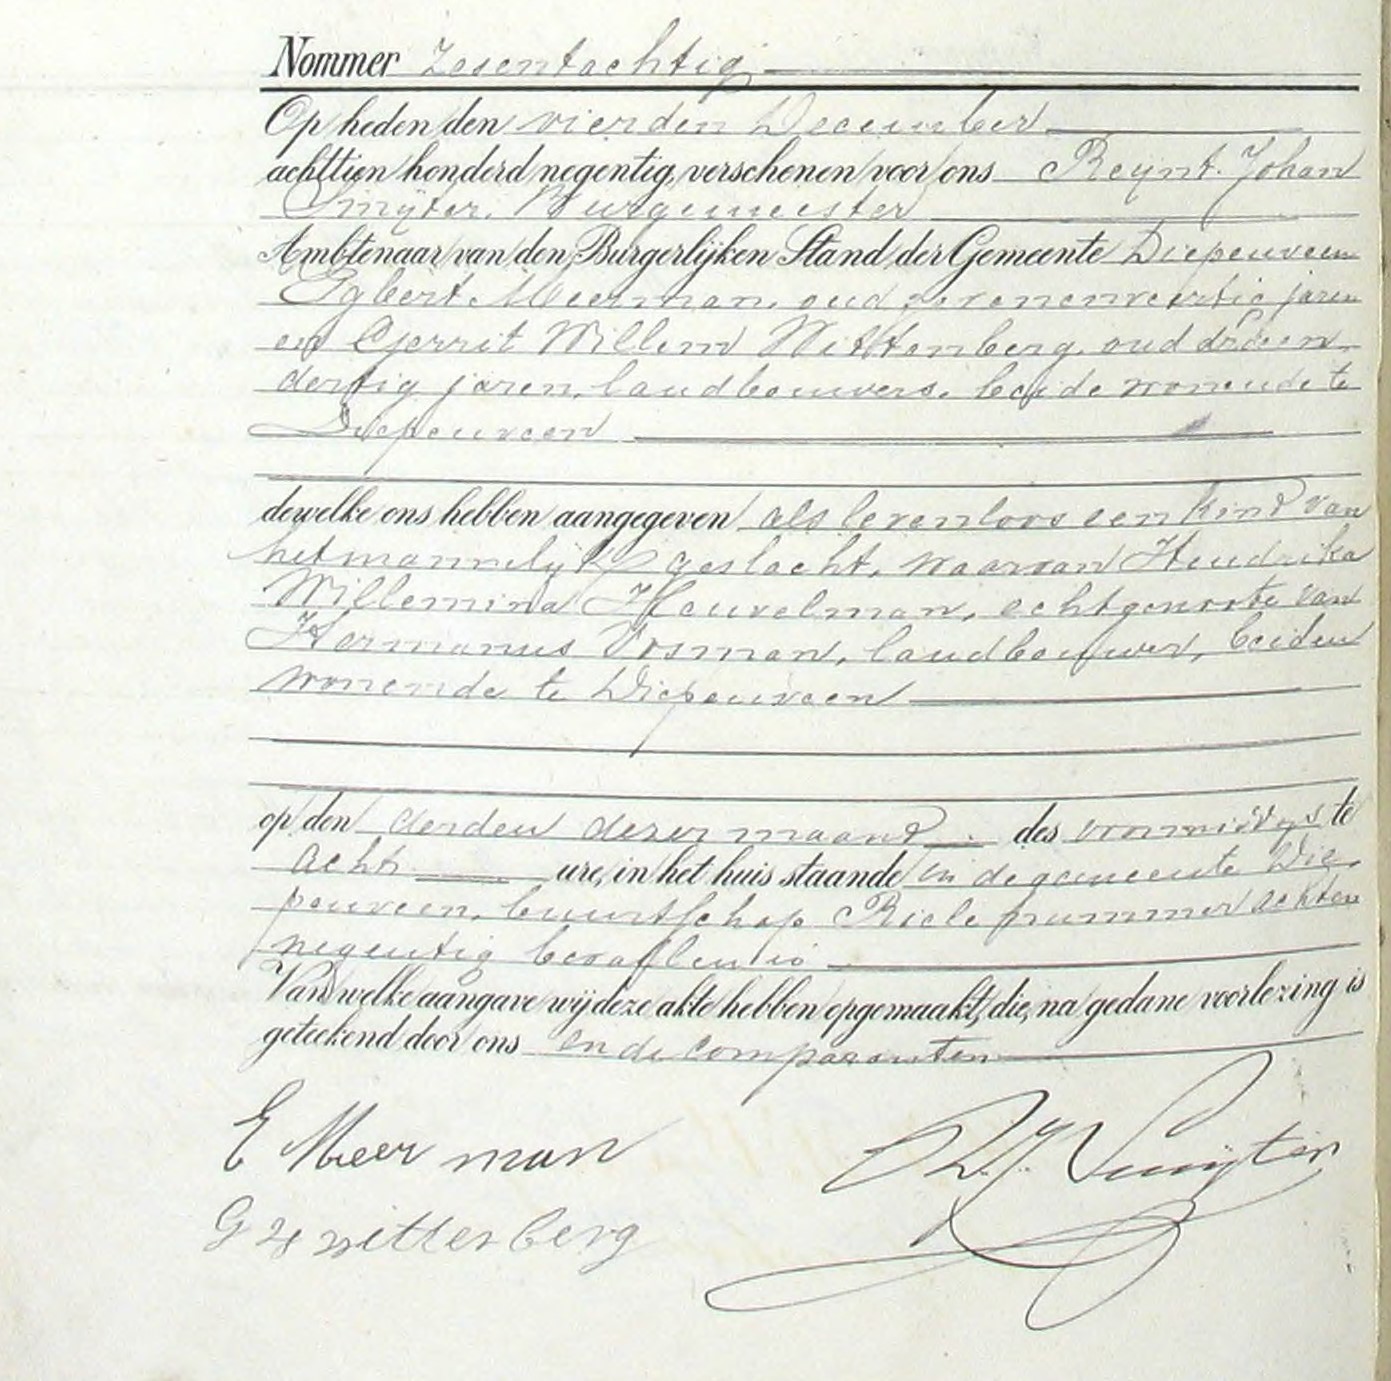 Nommer Zesentachtig
Op heden den vierden December
achttien honderd negentig, verschenen voor ons Reijnt Johan
Smijter, Burgemeester
Ambtenaar van den Burgerlijken Stand der Gemeente Diepenveen
Egbert Meerman, oud zevenenveertig jaren
en Gerrit Willem Wittenberg, oud drieen
dertig jaren, landbouwers, beide wonende te
Diepenveen
dewelke ons hebben aangegeven als levenloos een kind van
het mannelijk geslacht, waarvan Hendrika
Willemina Heuvelman, echtgenoote van
Hermanus Vosman, landbouwer, beiden
wonende te Diepenveen
op den derden dezer maand des voormiddags te
acht ure, in het huis staande in de gemeente Die
penveen, buurtschap Riele nummer achten
negentig bevallen is
Van welke aangave wij deze akte hebben opgemaakt, die, na gedane voorlezing is
geteekend door ons en de comparanten
E Meerman
R.J. Smijter
G W wittenberg